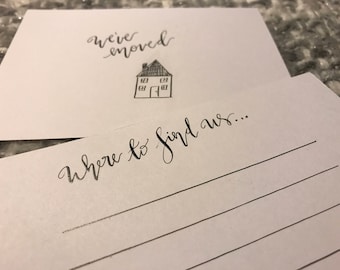 we've
moved
Where to find us...